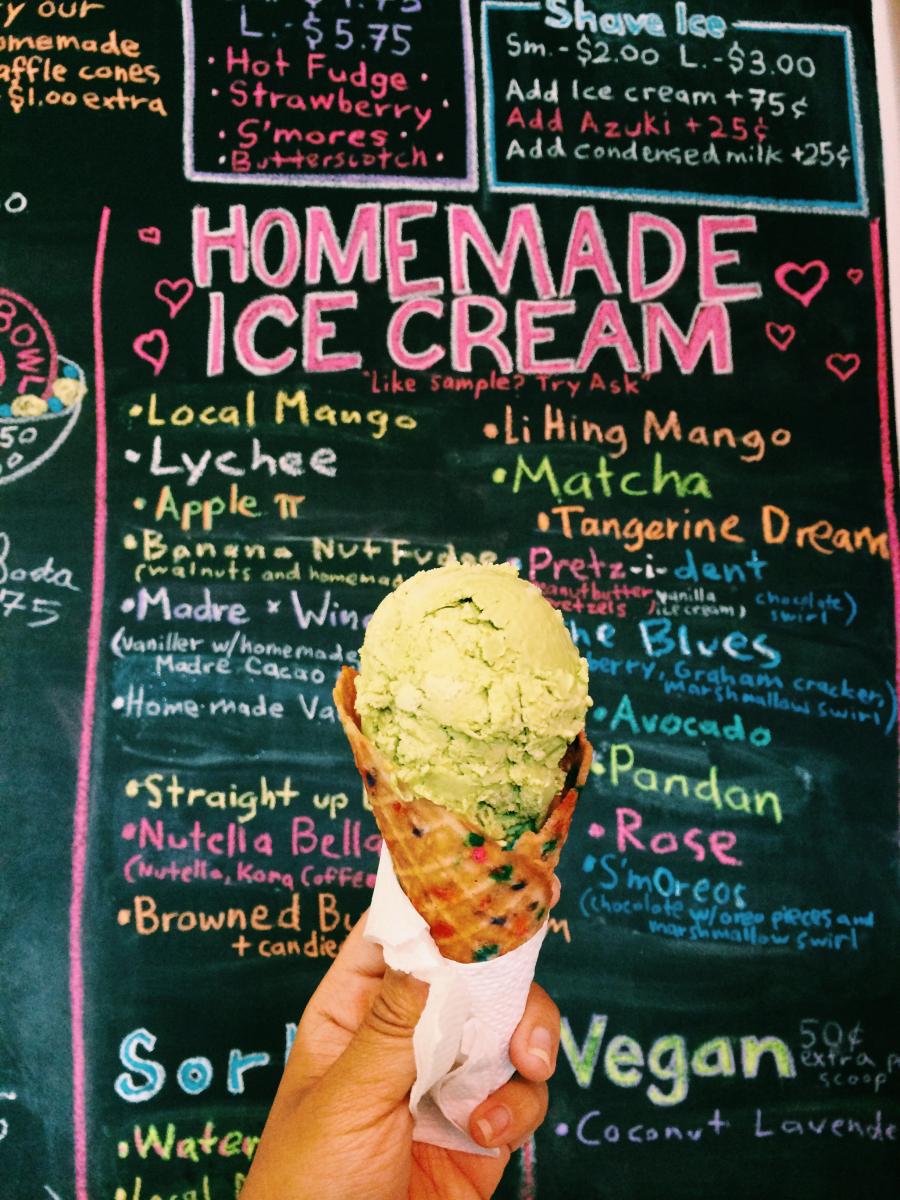 y our
omemade
affle cones
$1.00 extra
L.-$5.75
• Hot Fudge •
• Strawberry •
• S'mores •
• Butterscotch •
Shave Ice
Sm.-$2.00 L.-$3.00
Add Ice cream +75¢
Add Azuki +25¢
Add condensed milk +25¢
BOWL
50
75
HOMEMADE
ICE CREAM
"Like sample? Try Ask"
• Local Mango
• Lychee
• Apple π
• Banana Nut Fudge
(walnuts and homemad
• Madre * Win
(Vaniller w/homemade
Madre Cacao
• Home-made Va
• Straight up
• Nutella Bella
(Nutella, Kona Coffee
• Browned Bu
+ candie
• Li Hing Mango
• Matcha
• Tangerine Dream
• Pretz-i-dent
peanutbutter vanilla chocolate)
pretzels / ice cream, swirl
he Blues
berry, Graham cracker,
marshmallow swirl)
• Avocado
• Pandan
• Rose
• S'mOreos
(chocolate w/oreo pieces and
marshmallow swirl
Sor
• Water
• Local
Vegan
50¢
extra p
scoop
• Coconut Lavende